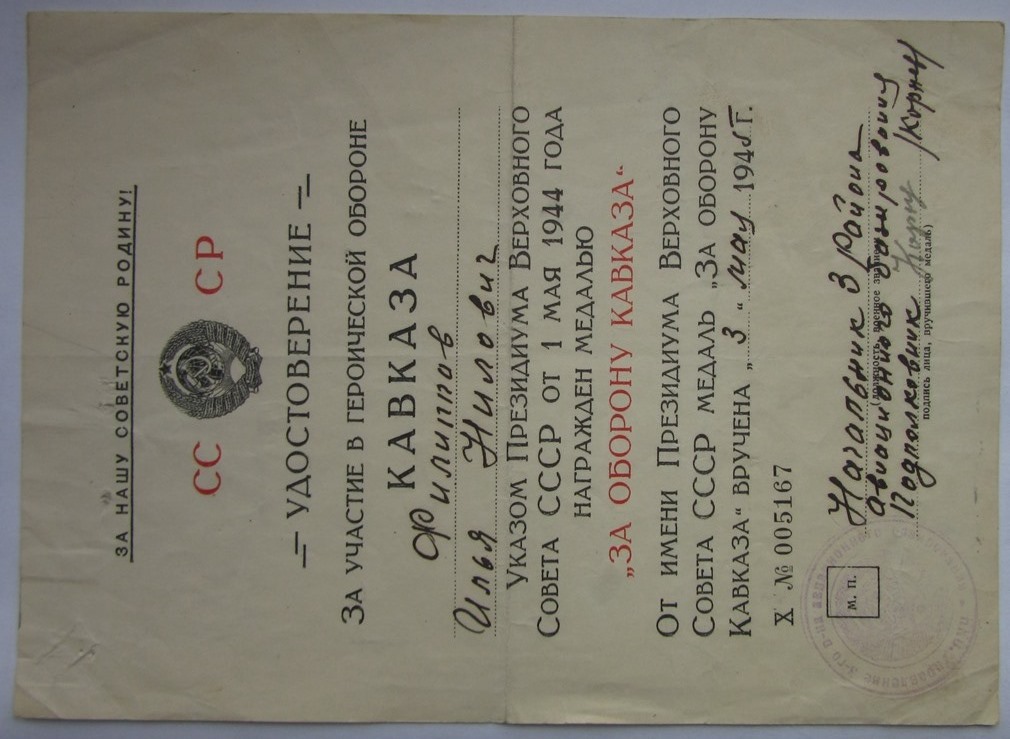 ЗА НАШУ СОВЕТСКУЮ РОДИНУ!
СС СР
УДОСТОВЕРЕНИЕ
ЗА УЧАСТИЕ В ГЕРОИЧЕСКОЙ ОБОРОНЕ
КАВКАЗА
Филиппов
Илья Нилович
УКАЗОМ ПРЕЗИДИУМА ВЕРХОВНОГО
СОВЕТА СССР ОТ 1 МАЯ 1944 ГОДА
НАГРАЖДЕН МЕДАЛЬЮ
„ЗА ОБОРОНУ КАВКАЗА“
ОТ ИМЕНИ ПРЕЗИДИУМА ВЕРХОВНОГО
СОВЕТА СССР МЕДАЛЬ „ЗА ОБОРОНУ
КАВКАЗА“ ВРУЧЕНА „3“ мая 1945 Г.
X № 005167
Начальник 3 района
авиационного базирования
(должность, военное звание
Подполковник /Корнев
подпись лица, вручившего медаль)
М. П.